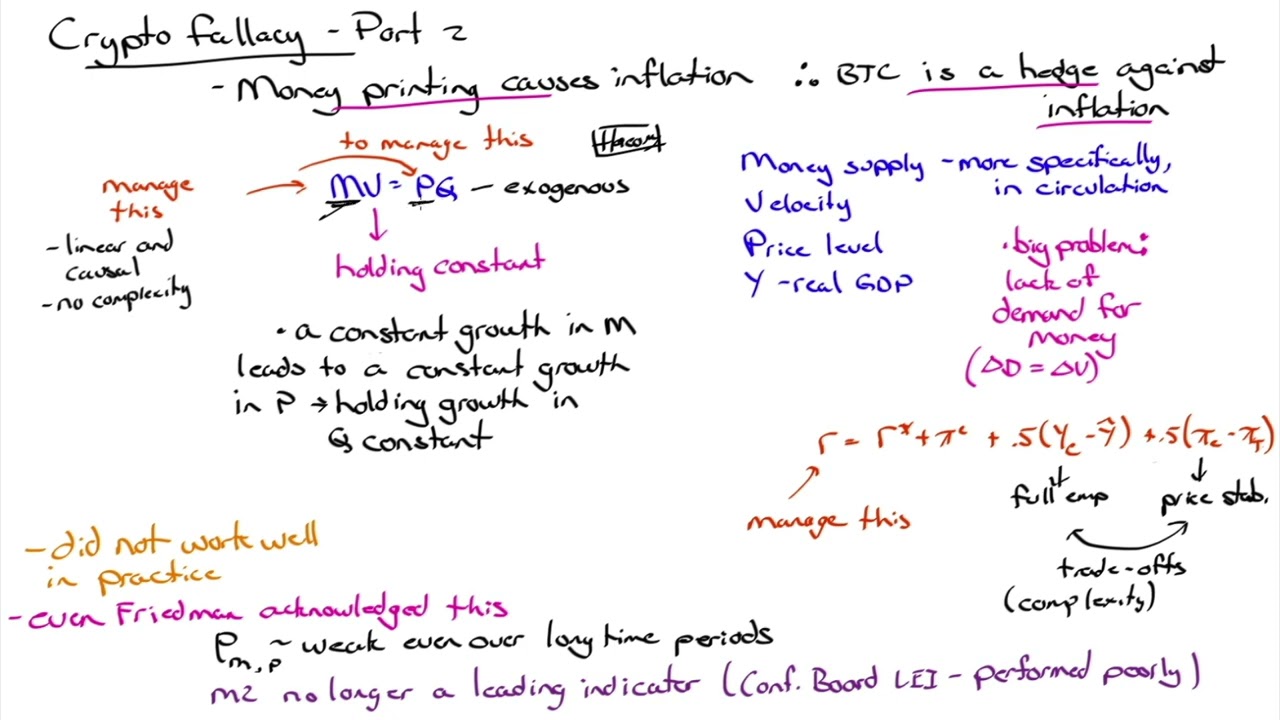 Crypto fallacy - Part 2
- Money printing causes inflation ∴ BTC is a hedge against
inflation
to manage this
manage
this
MV = PQ - exogenous
- linear and
causal
- no complexity
holding constant
• a constant growth in M
leads to a constant growth
in P → holding growth in
Q constant
Money supply - more specifically,
in circulation
Velocity
Price level
Y - real GDP
• big problem:
lack of
demand for
money
(ΔD = ΔV)
r = r* + πᵉ + .5(Y_c - Ŷ) + .5(π_c - π_T)
manage this
full emp
price stab.
trade-offs
(complexity)
- did not work well
in practice
- even Friedman acknowledged this
ρ_m,p ~ weak even over long time periods
M2 no longer a leading indicator (Conf. Board LEI - performed poorly)